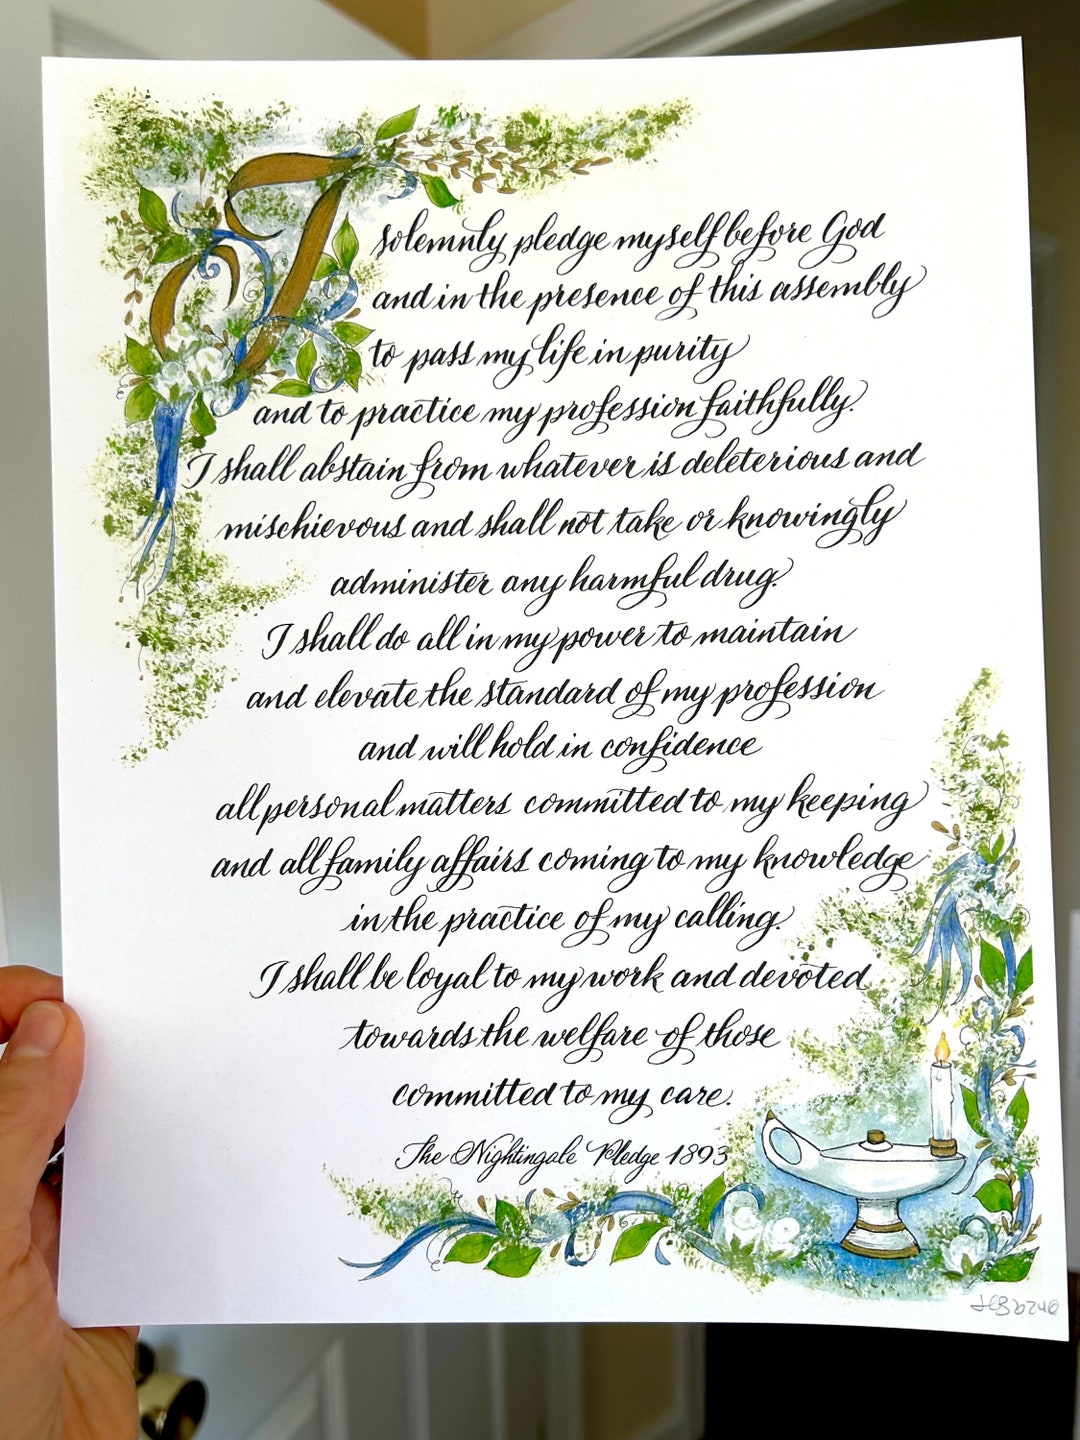 I solemnly pledge myself before God
and in the presence of this assembly
to pass my life in purity
and to practice my profession faithfully.
I shall abstain from whatever is deleterious and
mischievous and shall not take or knowingly
administer any harmful drug.
I shall do all in my power to maintain
and elevate the standard of my profession
and will hold in confidence
all personal matters committed to my keeping
and all family affairs coming to my knowledge
in the practice of my calling.
I shall be loyal to my work and devoted
towards the welfare of those
committed to my care.
The Nightingale Pledge 1893